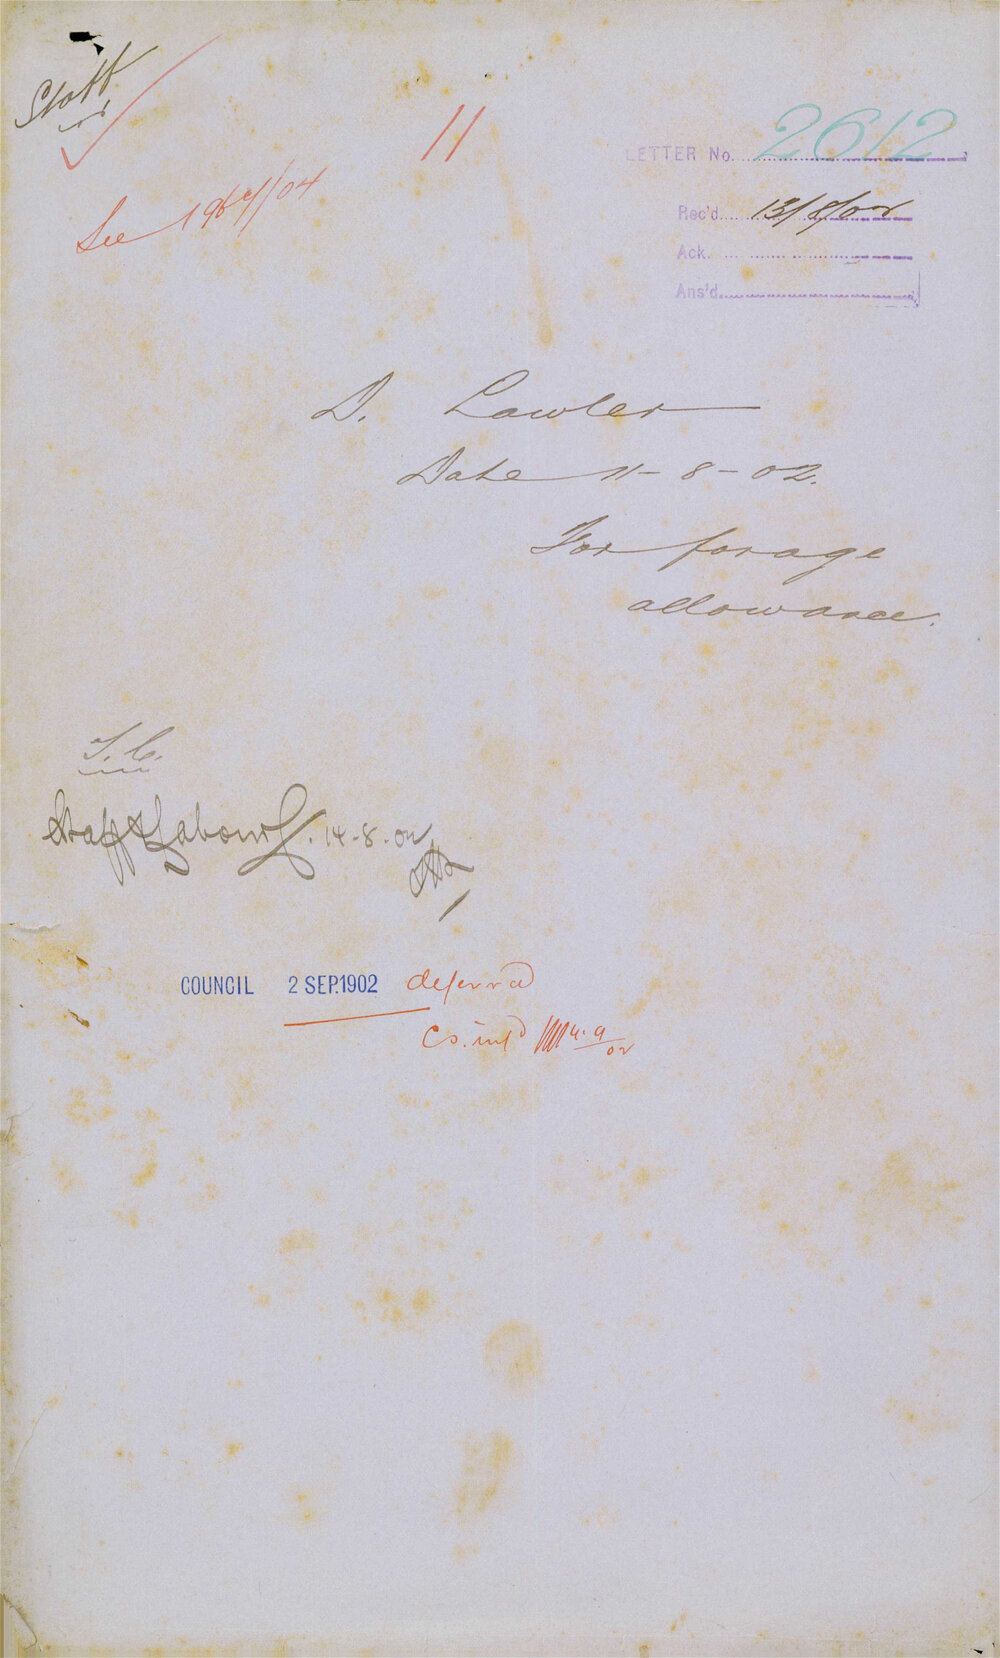 Staff
11
LETTER No. 2612
See 1964/04
Rec'd. 13/8/02
Ack.
Ans'd.
D. Lawler
Date 11-8-02.
For forage
allowance.
T.C.
Staff & Labour C. 14-8-02
COUNCIL 2 SEP.1902 deferred
Cs. inf'd 4.9/02